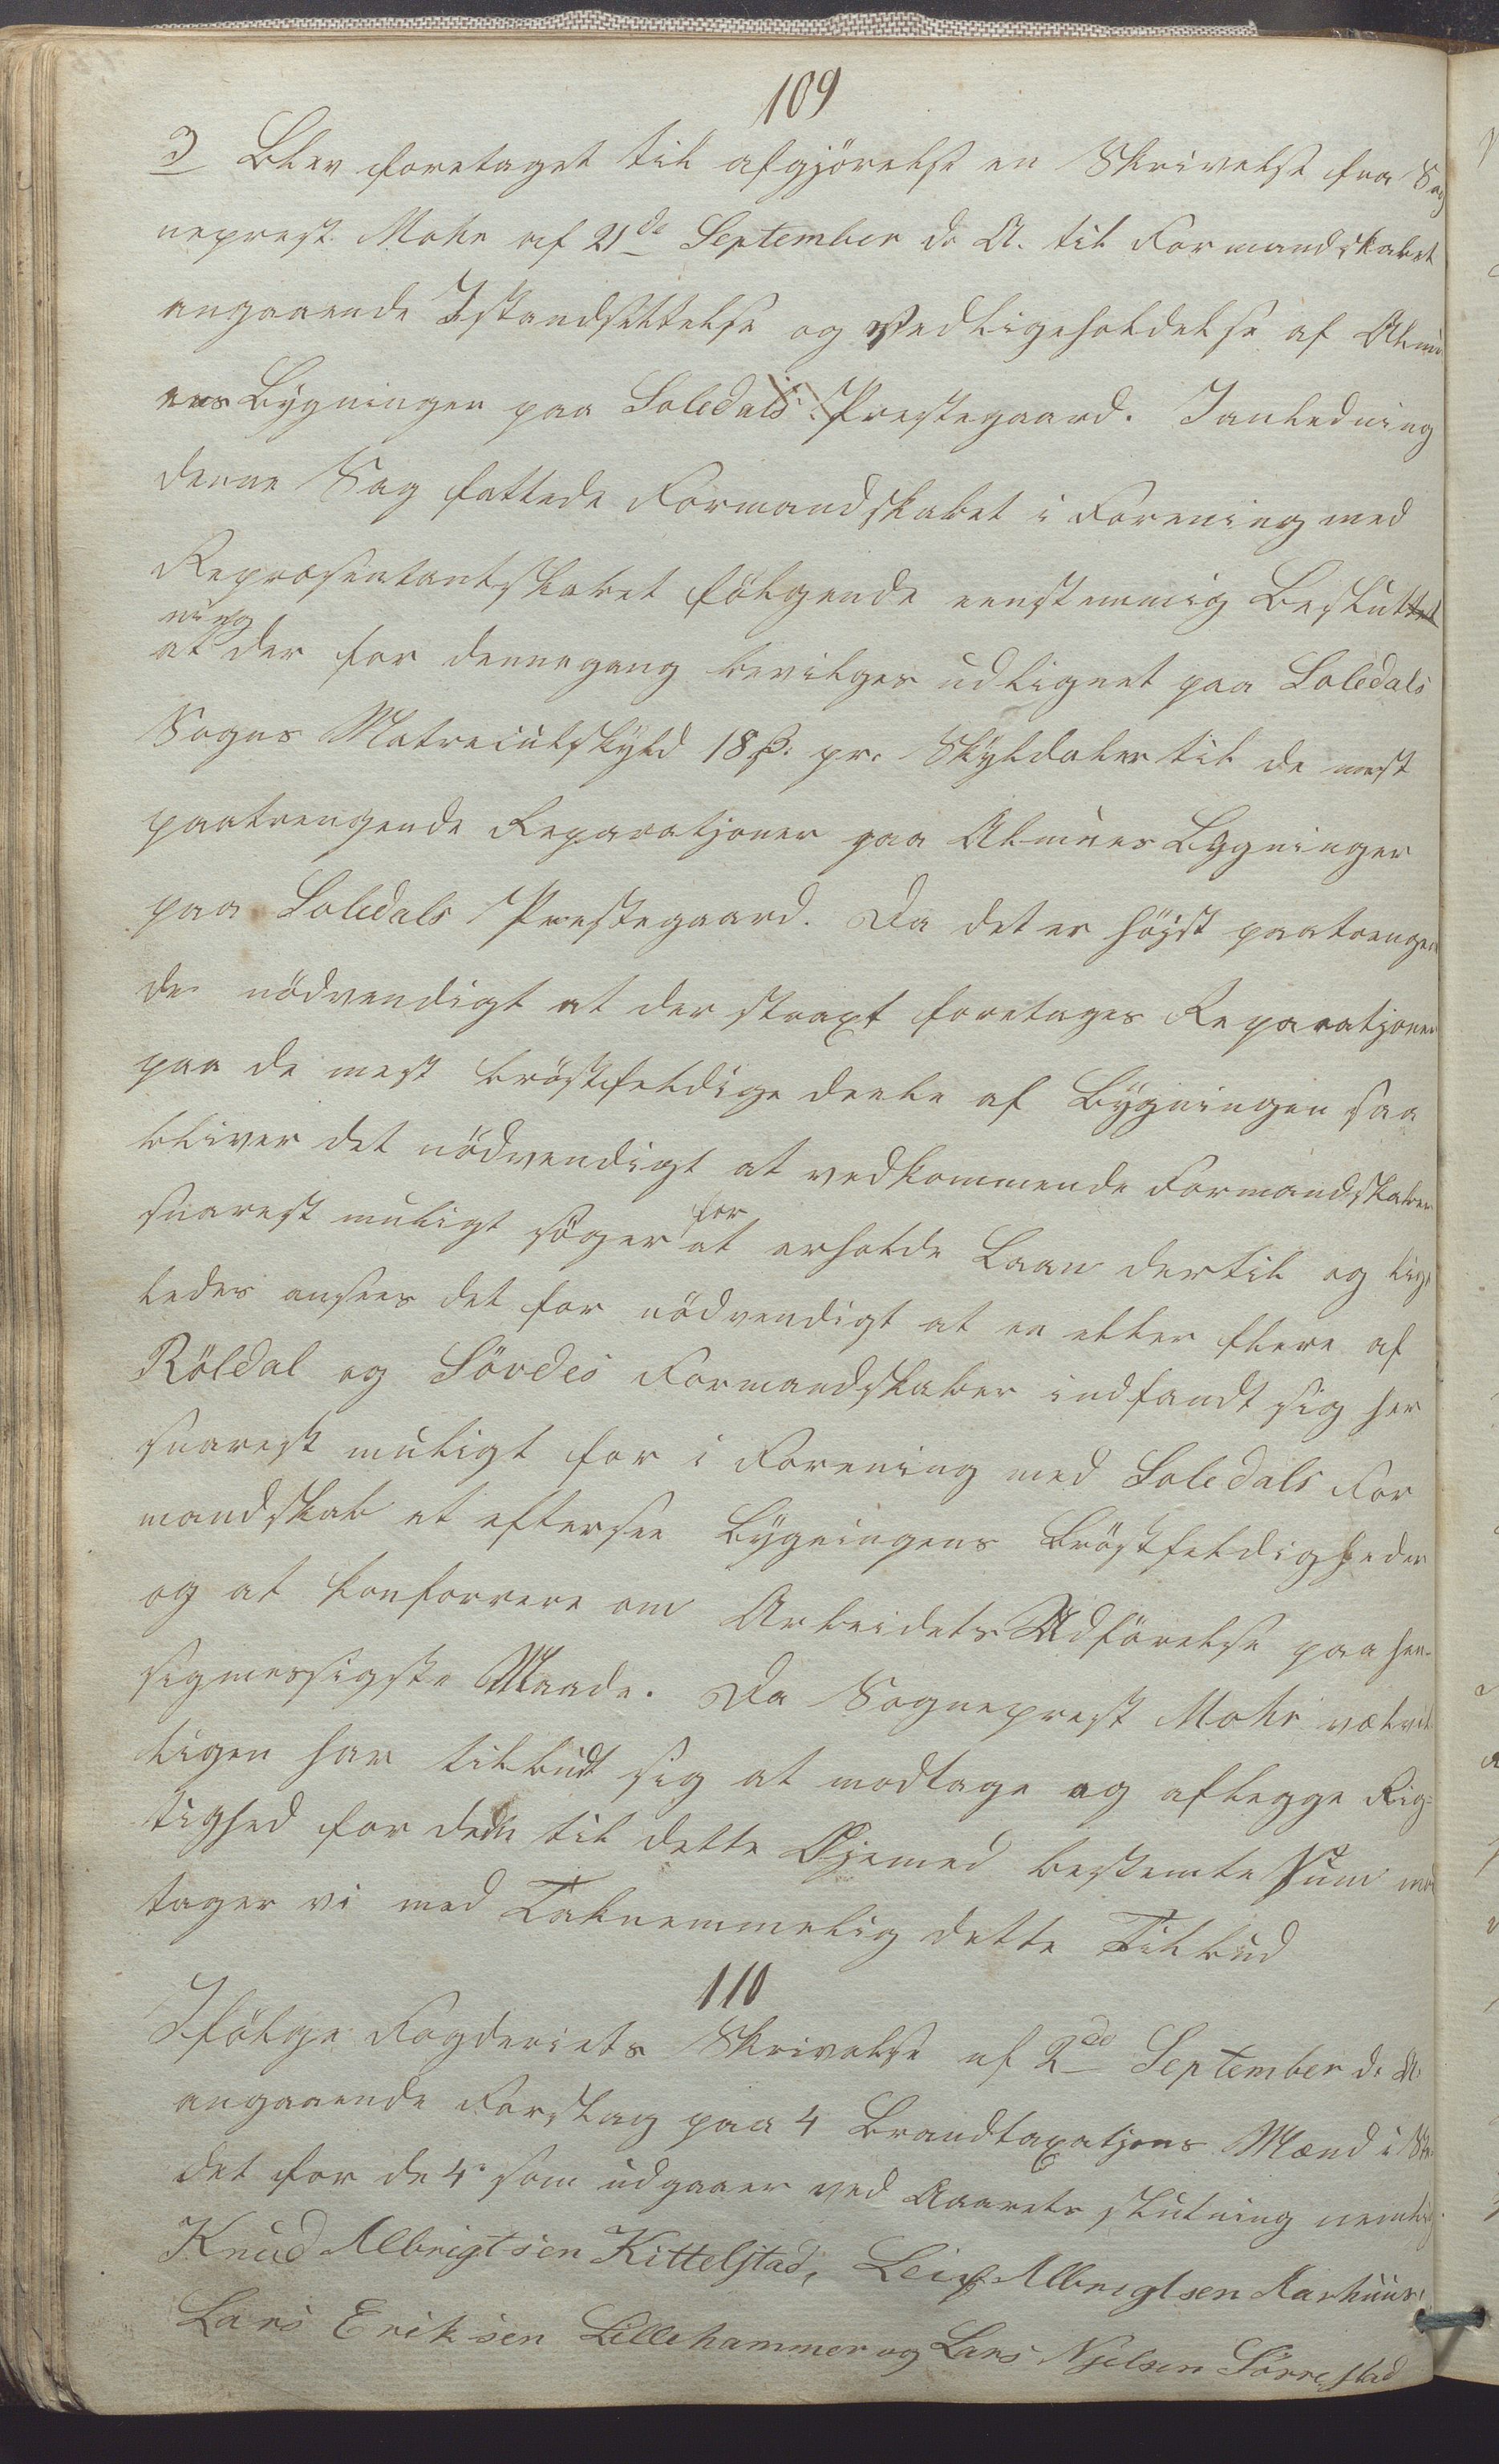 109
3 Blev foretaget til afgjörelse en Skrivelse fra Sog
neprest Mohr af 21de September d. A. til Formandskabet
angaaende Istandsættelse og Vedligeholdelse af Almu
ens Bygningen paa Soledals Prestegaard. I anledning
denne Sag fattede Formandskabet i Forening med
Repræsentantskabet fölgende eenstemmig Beslut
ning
at der for dennegang bevilges udlignet paa Soledals
Sogns Matreiculskyld 18 ß: pr. Skylddaler til de mest
paatrengende Reparatjoner paa Almues Bygninger
paa Soledals Prestegaard. Da det er höjst paatrengen
de nödvendigt at der straxt foretages Reparatjoner
paa de mest bröstfeldige deele af Bygningen saa
bliver det nödvendigt at vedkommende Formandskaber
snarest muligt söger for at erholde Laan dertil og lige
ledes ansees det for nödvendigt at en eller flere af
Röldal og Sövdes Formandskaber indfandt sig her
snarest muligt for i Forening med Soledals For
mandskab at eftersee Bygningens Bröstfeldigheder
og at konforrere om Arbeidets Udförelse paa hen-
sigmessigste Maade. Da Sogneprest Mohr velvil
ligen har tilbudt sig at modtage og aflegge Rig-
tighed for den til dette Öjemed bestemte Sum mod
tager vi med Taknemmelig dette Tilbud
110
Ifölge Fogderiets Skrivelse af 2de September d. A.
angaaende Forslag paa 4 Brandtaxatjons Mænd i Ste
det for de 4 som udgaaer ved Aarets slutning nemlig
Knud Albrigtsen Kittelstad, Leif Albrigtsen Aarhuus,
Lars Eriksen Lillehammer og Lars Njelsen Sörrestad